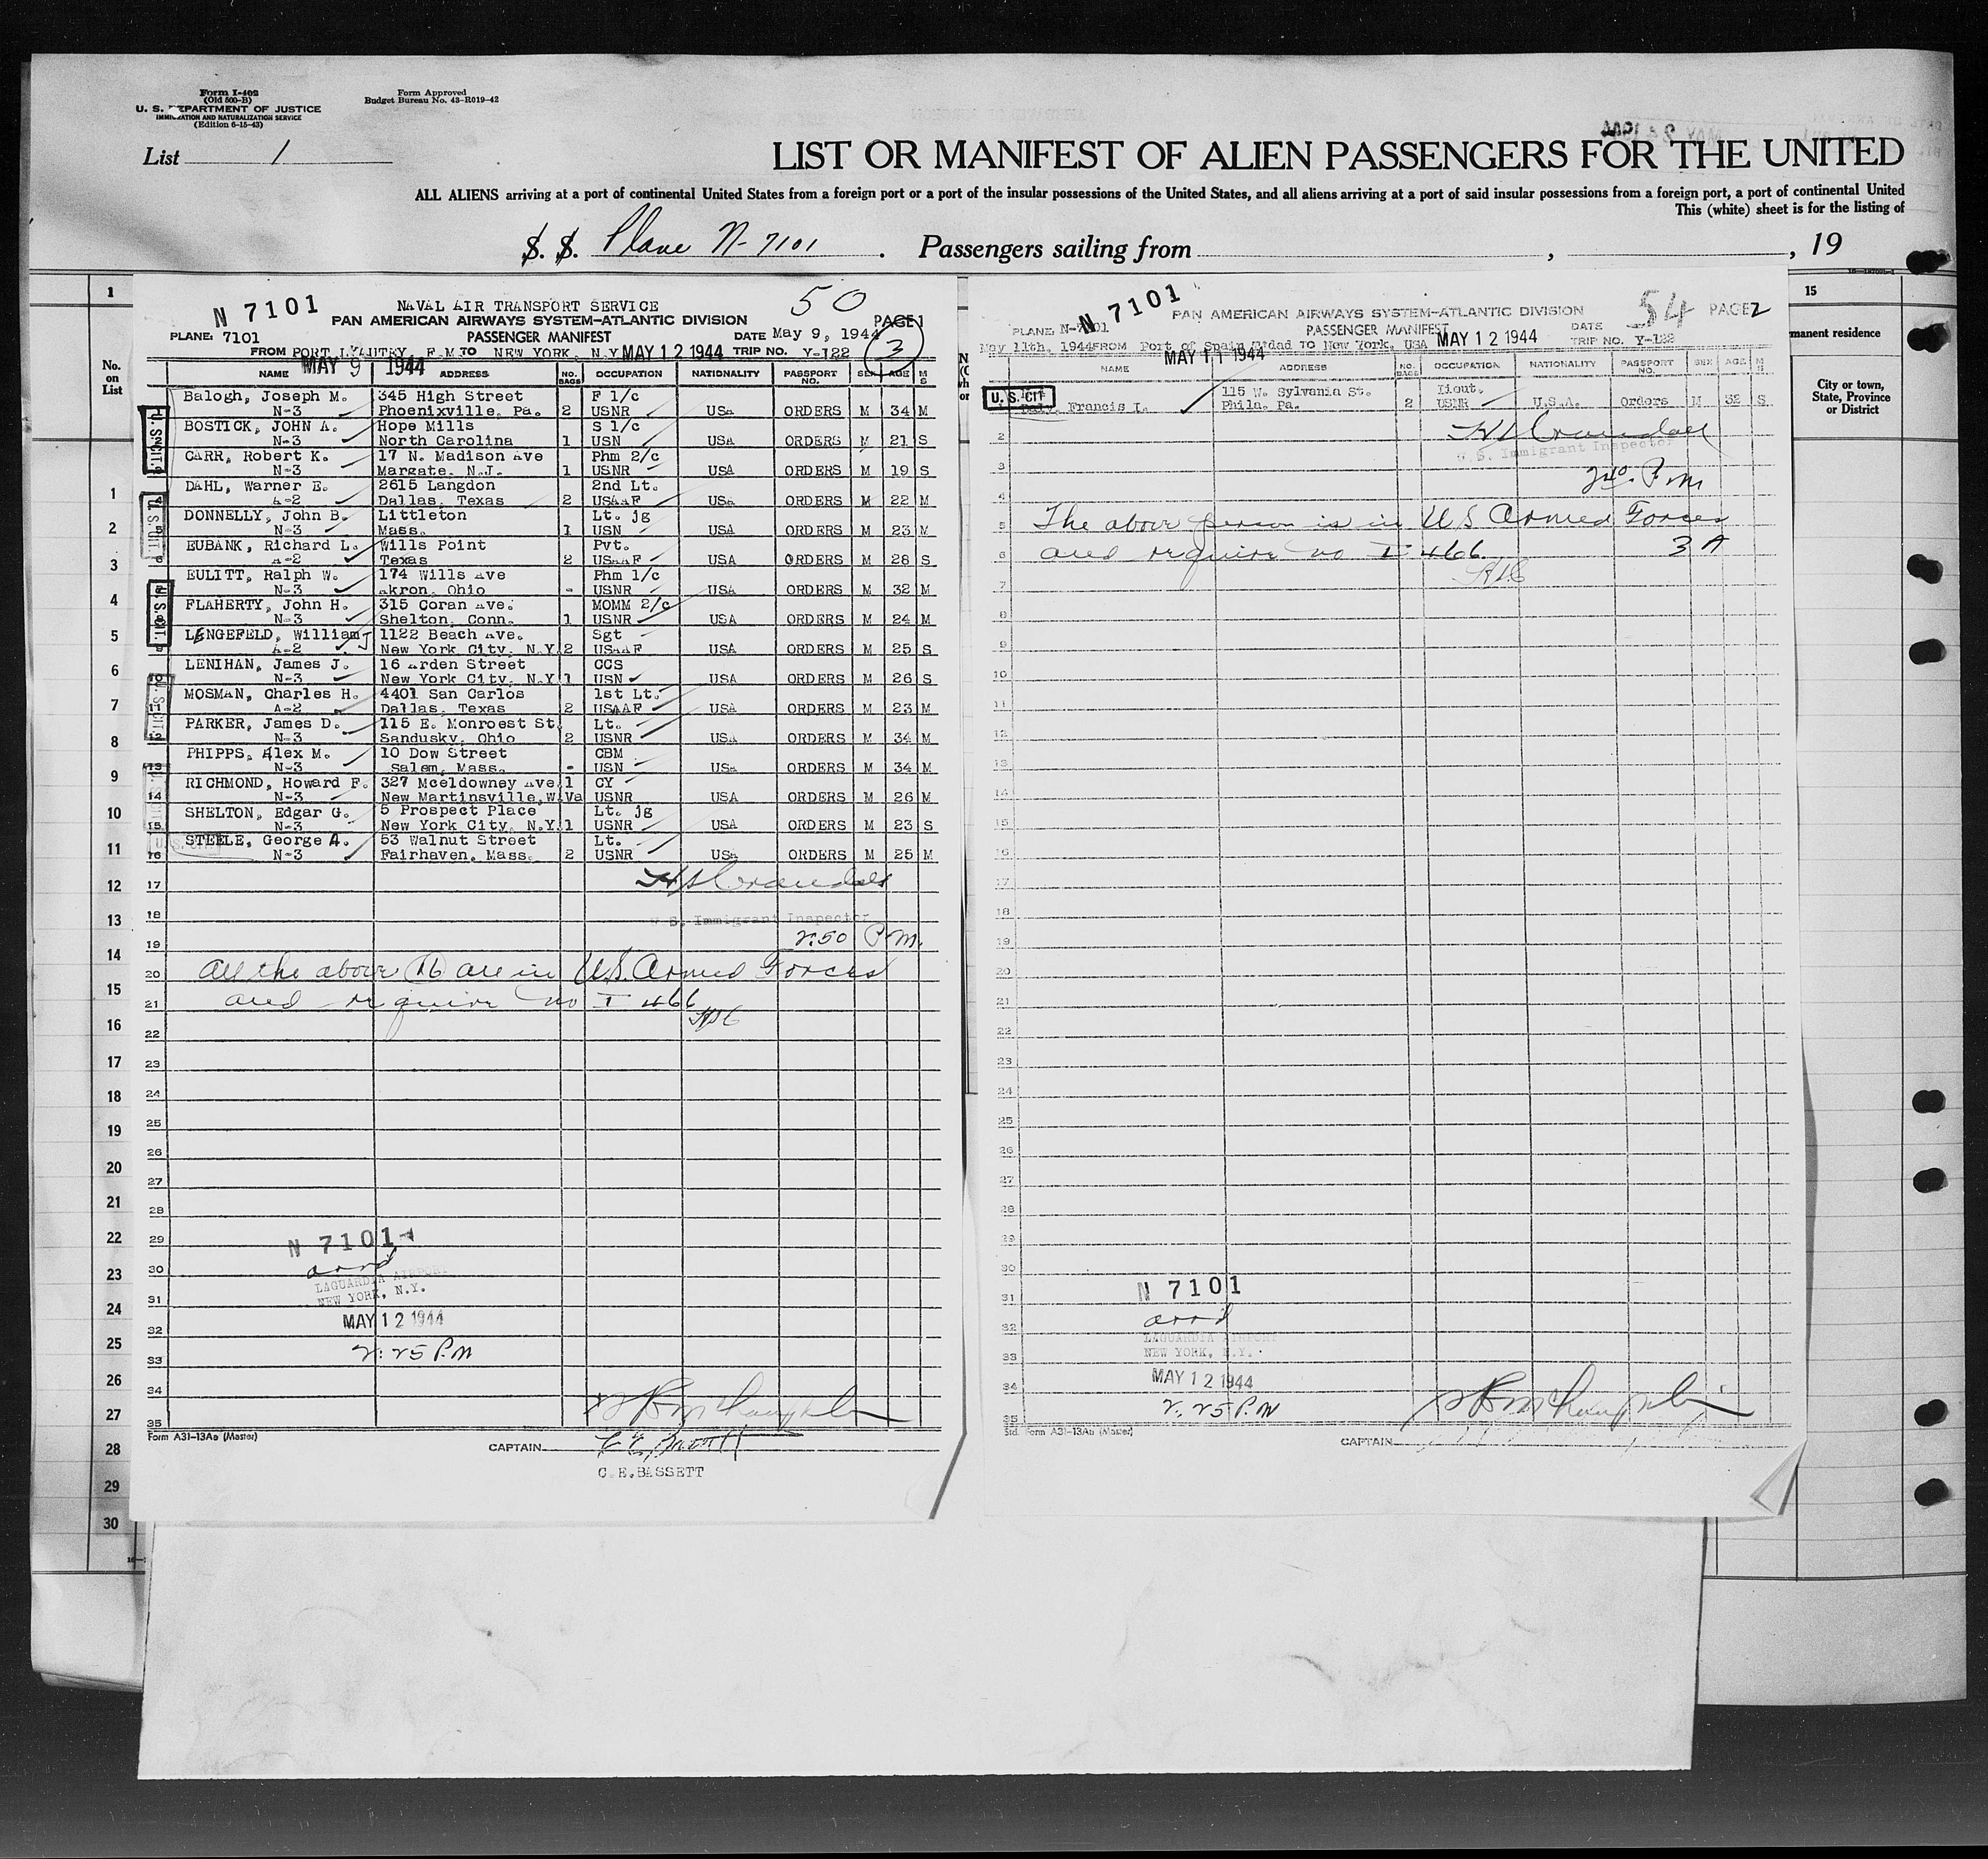 Form I-402
(Old 500-B)
U. S. DEPARTMENT OF JUSTICE
IMMIGRATION AND NATURALIZATION SERVICE
(Edition 6-15-43)
Form Approved
Budget Bureau No. 43-R019-42
List 1
LIST OR MANIFEST OF ALIEN PASSENGERS FOR THE UNITED
ALL ALIENS arriving at a port of continental United States from a foreign port or a port of the insular possessions of the United States, and all aliens arriving at a port of said insular possessions from a foreign port, a port of continental United
This (white) sheet is for the listing of
S. S. Plane N-7101 . Passengers sailing from , , 19
1
No. on List
1
2
3
4
5
6
7
8
9
10
11
12
13
14
15
16
17
18
19
20
21
22
23
24
25
26
27
28
29
30
N 7101
NAVAL AIR TRANSPORT SERVICE
50
PAN AMERICAN AIRWAYS SYSTEM-ATLANTIC DIVISION PAGE 1
PLANE: 7101 PASSENGER MANIFEST DATE May 9, 1944
3
FROM PORT LYAUTEY, F.M. TO NEW YORK, N.Y. MAY 12 1944 TRIP NO. Y-122
MAY 9 1944
NAME ADDRESS NO. BAGS OCCUPATION NATIONALITY PASSPORT NO. SEX AGE M S
Balogh, Joseph M. 345 High Street F 1/c
N-3 Phoenixville, Pa. 2 USNR USA ORDERS M 34 M
BOSTICK, JOHN A. Hope Mills S 1/c
N-3 North Carolina 1 USN USA ORDERS M 21 S
CARR, Robert K. 17 N. Madison Ave Phm 2/c
N-3 Margate, N.J. 1 USNR USA ORDERS M 19 S
DAHL, Warner E. 2615 Langdon 2nd Lt.
A-2 Dallas, Texas 2 USAAF USA ORDERS M 22 M
DONNELLY, John B. Littleton Lt. jg
N-3 Mass. 1 USN USA ORDERS M 23 M
EUBANK, Richard L. Wills Point Pvt.
A-2 Texas 2 USAAF USA ORDERS M 28 S
EULITT, Ralph W. 174 Wills Ave Phm 1/c
N-3 Akron, Ohio - USNR USA ORDERS M 32 M
FLAHERTY, John H. 315 Coran Ave. MOMM 2/c
N-3 Shelton, Conn. 1 USNR USA ORDERS M 24 M
LENGEFELD, William J 1122 Beach Ave. Sgt
A-2 New York City, N.Y. 2 USAAF USA ORDERS M 25 S
LENIHAN, James J. 16 Arden Street CCS
N-3 New York City, N.Y. 1 USN USA ORDERS M 26 S
MOSMAN, Charles H. 4401 San Carlos 1st Lt.
A-2 Dallas, Texas 2 USAAF USA ORDERS M 23 M
PARKER, James D. 115 E. Monroest St. Lt.
N-3 Sandusky, Ohio 2 USNR USA ORDERS M 34 M
PHIPPS, Alex M. 10 Dow Street CBM
N-3 Salem, Mass. - USN USA ORDERS M 34 M
RICHMOND, Howard F. 327 Mceldowney Ave 1 CY
N-3 New Martinsville, W.Va USNR USA ORDERS M 26 M
SHELTON, Edgar G. 5 Prospect Place Lt. jg
N-3 New York City, N.Y. 1 USNR USA ORDERS M 23 S
STEELE, George A. 53 Walnut Street Lt.
N-3 Fairhaven, Mass. 2 USNR USA ORDERS M 25 M
U.S. CIT.
17
18
U. S. Immigrant Inspector
19
2:50 P.M.
20 All the above 16 are in U.S. Armed Forces
21 and require no I 466
HSC
22
23
24
25
26
27
28
29
N 7101
30 arrd
LAGUARDIA AIRPORT
NEW YORK, N.Y.
31
MAY 12 1944
32
2:25 P.M
33
34
35
Form A31-13Aa (Master)
CAPTAIN
C.E.BASSETT
N 7101
54 PAGE 2
PAN AMERICAN AIRWAYS SYSTEM-ATLANTIC DIVISION
PLANE N-7101 PASSENGER MANIFEST DATE
May 11th, 1944 FROM Port of Spain Tdad TO New York, USA MAY 12 1944 TRIP NO. Y-122
MAY 11 1944
NAME ADDRESS NO. BAGS OCCUPATION NATIONALITY PASSPORT NO. SEX AGE M S
U.S. CIT 115 W. Sylvania St. Lieut.
Francis I. Phila. Pa. 2 USNR U.S.A. Orders M 32 S
2
U. S. Immigrant Inspector
3
P.M
4
5 The above person is in U S Armed Forces
6 and require no I 466 3 A
HSC
7
8
9
10
11
12
13
14
15
16
17
18
19
20
21
22
23
24
25
26
27
28
29
30
31
N 7101
32 arrd
LAGUARDIA AIRPORT
33 NEW YORK, N.Y.
34 MAY 12 1944
35 2:25 P.M
Std. Form A31-13Aa (Master)
CAPTAIN
15
manent residence
City or town, State, Province or District